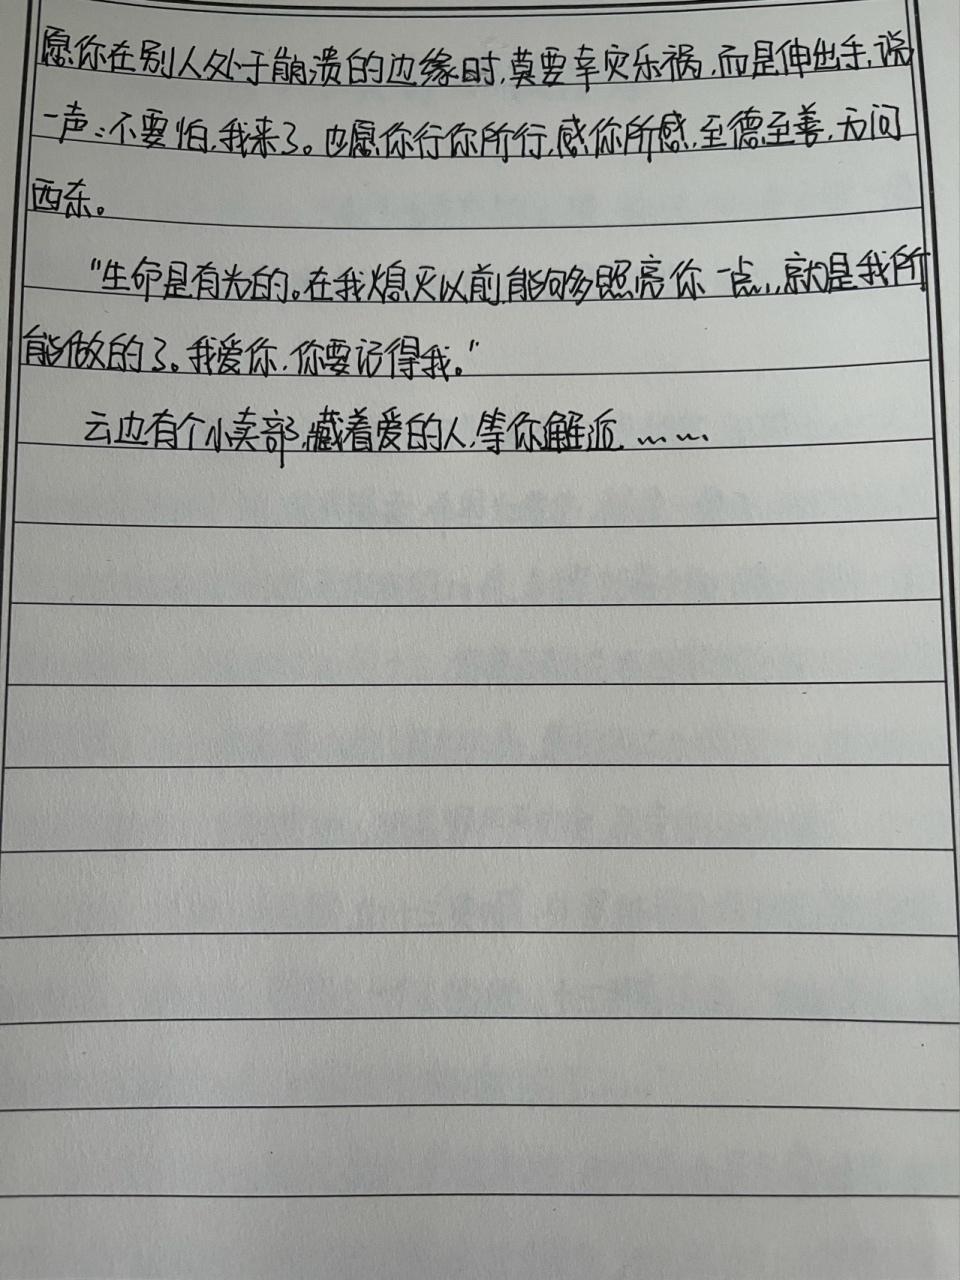 愿你在别人处于崩溃的边缘时,莫要幸灾乐祸,而是伸出手,说
一声:不要怕,我来了。也愿你行你所行,感你所感,至德至善,无问
西东。
"生命是有光的。在我熄灭以前,能够照亮你一点,就是我所
能做的了。我爱你,你要记得我。"
云边有个小卖部,藏着爱的人,等你邂逅……